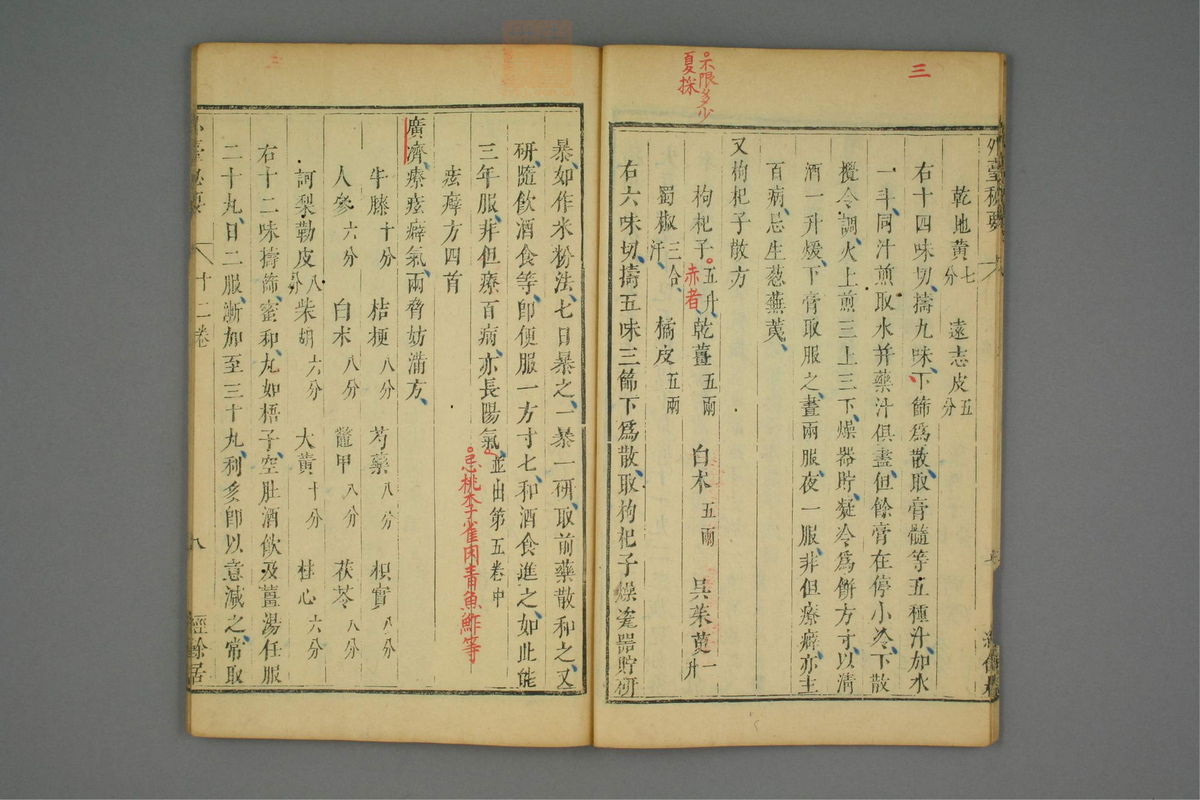 三
不限多少
夏採
乾地黃七分 遠志皮五分
右十四味切擣九味下篩爲散取膏髓等五種汁如水
一斗同汁煎取水并藥汁俱盡但餘膏在停小冷下散
攪令調火上煎三上三下燥器貯凝冷爲餅方寸以清
酒一升煖下膏取服之晝兩服夜一服非但療癖亦主
百病忌生葱蕪荑
又枸杞子散方
枸杞子五升 赤者 乾薑五兩 白朮五兩 吳茱萸一升
蜀椒三合汗 橘皮五兩
右六味切擣五味三篩下爲散取枸杞子燥瓷器貯研
暴如作米粉法七日暴之一暴一研取前藥散和之又
研隨飲酒食等卽便服一方寸七和酒食進之如此能
三年服非但療百病亦長陽氣並出第五卷中
忌桃李雀肉青魚鮓等
痃癖方四首
廣濟療痃癖氣兩脅妨滿方
牛膝十分 桔梗八分 芍藥八分 枳實八分
人參六分 白朮八分 鼈甲八分 茯苓八分
訶梨勒皮八分 柴胡六分 大黃十分 桂心六分
右十二味擣篩蜜和丸如梧子空肚酒飲及薑湯任服
二十丸日二服漸加至三十丸利多卽以意減之常取
十二卷
八
經餘居